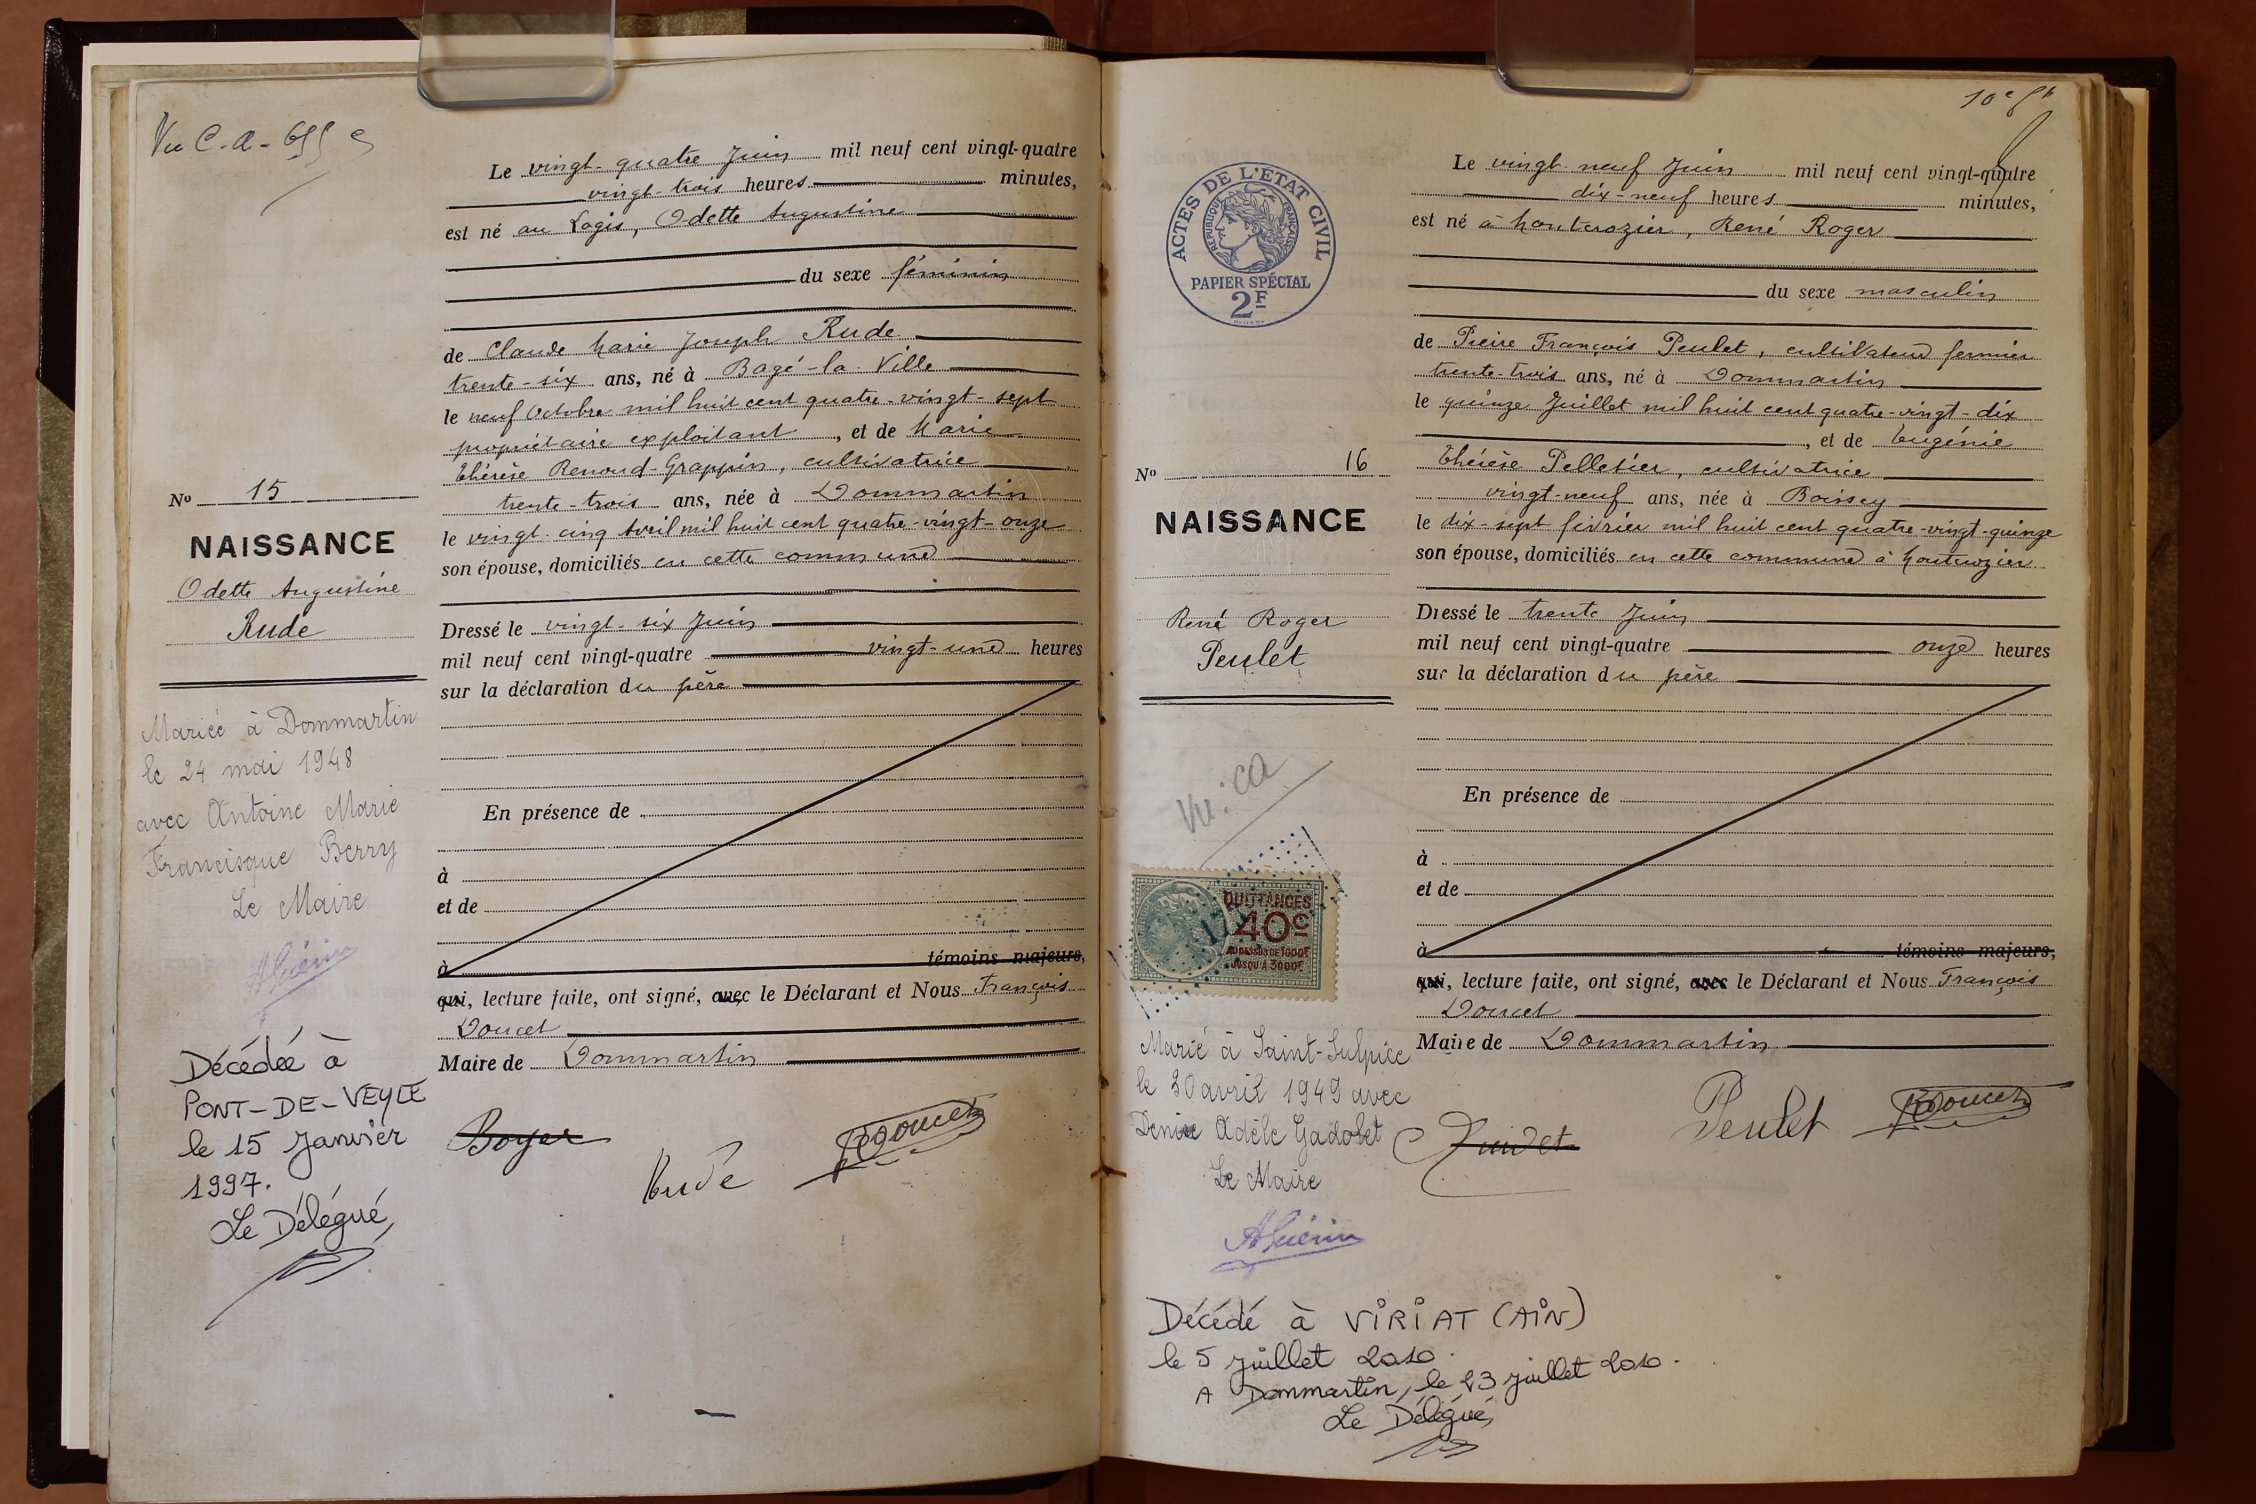 Vu C-a-
Le vingt-quatre Juin mil neuf cent vingt-quatre
vingt-trois heures minutes,
est né au Logis, Odette Augustine
du sexe féminin
de Claude Marie Joseph Rude
trente-six ans, né à Bagé-la-Ville
le neuf Octobre mil huit cent quatre-vingt-sept
propriétaire exploitant, et de Marie
Thérèse Renoud-Grappin, cultivatrice
trente-trois ans, née à Dommartin
le vingt-cinq Avril mil huit cent quatre-vingt-onze
son épouse, domiciliés en cette commune
Dressé le vingt-six Juin
mil neuf cent vingt-quatre vingt-une heures
sur la déclaration du père
En présence de
à
et de
à témoins majeurs,
qui, lecture faite, ont signé, avec le Déclarant et Nous François
Doucet
Maire de Dommartin
Boyer
Rude
Doucet
No 15
NAISSANCE
Odette Augustine
Rude
Mariée à Dommartin
le 24 mai 1948
avec Antoine Marie
Francisque Berry
Le Maire
A Guérin
Décédée à
PONT-DE-VEYLE
le 15 Janvier
1997.
Le Délégué,
10e
ACTES DE L'ETAT CIVIL
REPUBLIQUE FRANÇAISE
PAPIER SPÉCIAL
2F
Le vingt-neuf Juin mil neuf cent vingt-quatre
dix-neuf heures minutes,
est né à Montcrozier, René Roger
du sexe masculin
de Pierre François Peulet, cultivateur fermier
trente-trois ans, né à Dommartin
le quinze Juillet mil huit cent quatre-vingt-dix
, et de Eugénie
Thérèse Pelletier, cultivatrice
vingt-neuf ans, née à Boissey
le dix-sept février mil huit cent quatre-vingt-quinze
son épouse, domiciliés en cette commune à Montcrozier
Dressé le trente Juin
mil neuf cent vingt-quatre onze heures
sur la déclaration du père
En présence de
à
et de
à témoins majeurs,
qui, lecture faite, ont signé, avec le Déclarant et Nous François
Doucet
Maire de Dommartin
Peulet
Doucet
No 16
NAISSANCE
René Roger
Peulet
Vu: ca
QUITTANCES
40c
AU DESSUS DE 1000F
JUSQU'A 3000F
Marié à Saint-Sulpice
le 30 avril 1949 avec
Denise Adèle Gadolet
Le Maire
A Guérin
Décédé à VIRIAT (AIN)
le 5 juillet 2010.
A Dommartin, le 23 juillet 2010.
Le Délégué,